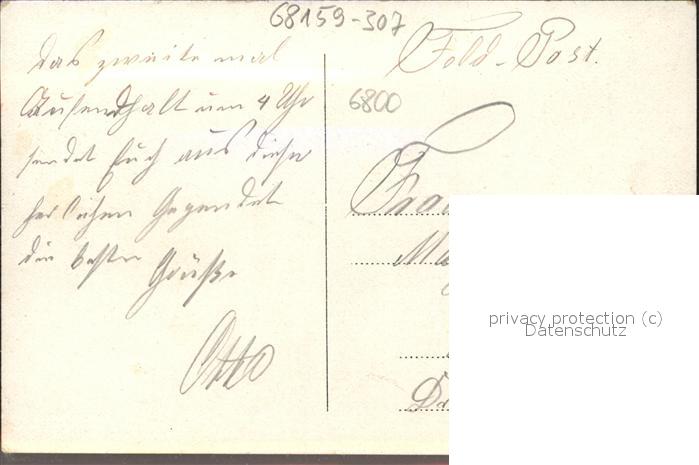 68159-307
Das zweite mal
Aufendhalt um 4 Uhr
sendet Euch aus dieser
herlichen Gegend
die besten Grüße
Otto
Feld-Post.
6800
Frau
privacy protection (c)
Datenschutz